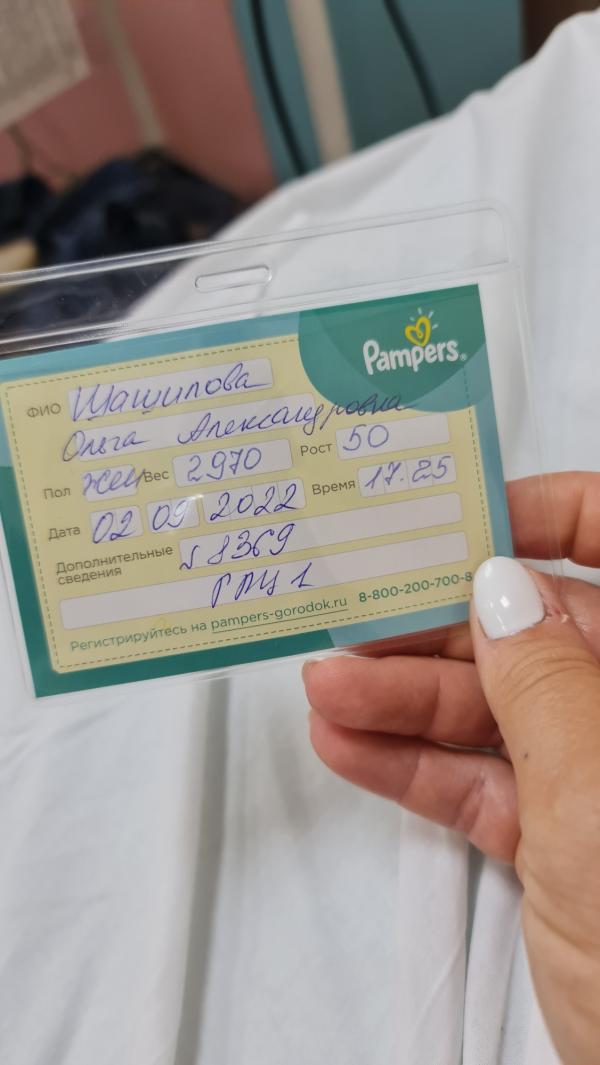 Pampers®
ФИО Шашилова
Ольга Александровна
Пол жен Вес 2970 Рост 50
Дата 02 09 2022 Время 17.25
Дополнительные сведения
№ 8369
ГПЦ 1
Регистрируйтесь на pampers-gorodok.ru 8-800-200-700-8